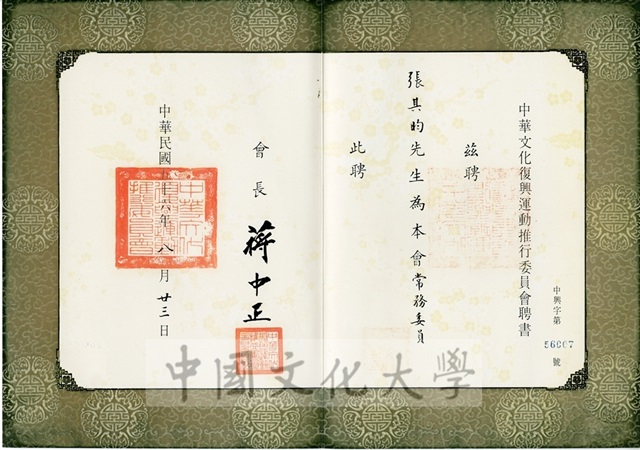 中華文化復興運動推行委員會聘書
中興字第
56007
號
茲聘
張其昀先生為本會常務委員
此聘
會長 蔣中正
中華民國五十六年八月廿三日
中國文化大學